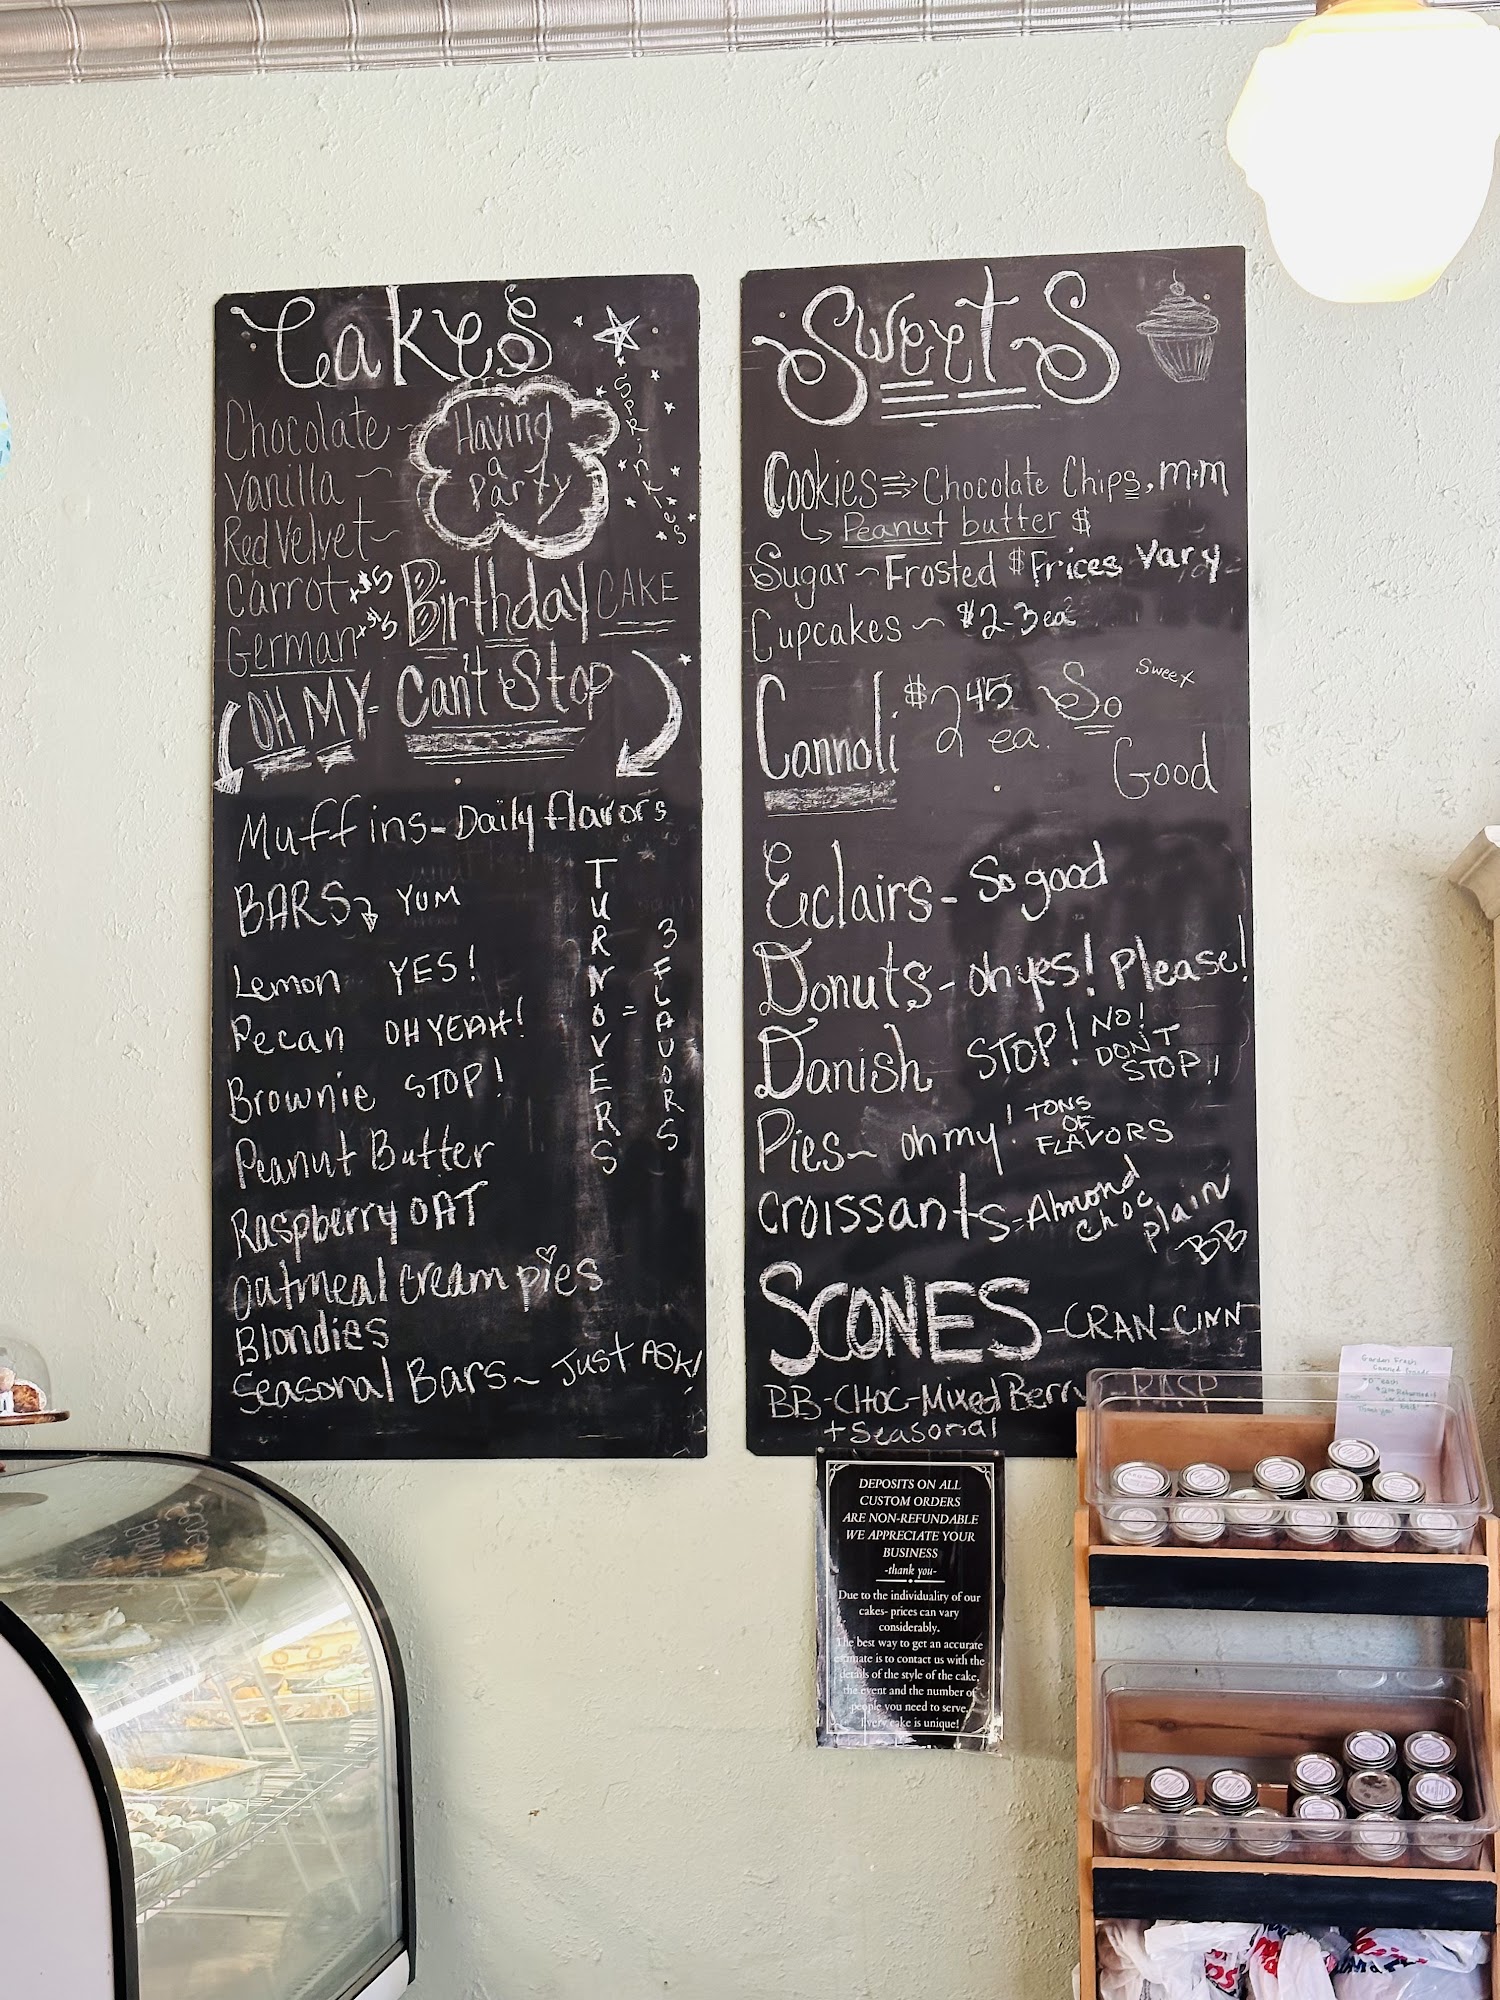 Cakes
Chocolate ~
Vanilla ~
Red Velvet ~
Carrot +$5
German +$5
Having
a
Party
SPRinkles
Birthday CAKE
OH MY - Can't Stop
Muffins - Daily flavors
BARS YUM
Lemon YES!
Pecan OH YEAH!
Brownie STOP!
Peanut Butter
Raspberry OAT
Oatmeal cream pies
Blondies
Seasonal Bars ~ Just ASK!
TURNOVERS = 3 FLAVORS
Sweets
Cookies ⇒ Chocolate Chips, m+m
↳ Peanut butter $
Sugar ~ Frosted $ Prices Vary
Cupcakes ~ $2-3 ea
Cannoli $2.45 ea. So Sweet
Good
Eclairs - So good
Donuts - oh yes! Please!
Danish STOP! NO!
DON'T
STOP!!
Pies ~ oh my! TONS
OF
FLAVORS
croissants = Almond
choc
plain
BB
SCONES - CRAN-CINN
BB-CHOC-Mixed Berry - RASP
+ Seasonal
DEPOSITS ON ALL
CUSTOM ORDERS
ARE NON-REFUNDABLE
WE APPRECIATE YOUR
BUSINESS
-thank you-
Due to the individuality of our
cakes- prices can vary
considerably.
The best way to get an accurate
estimate is to contact us with the
details of the style of the cake,
the event and the number of
people you need to serve,
Every cake is unique!
Garden Fresh
Canned
each
Thank you!